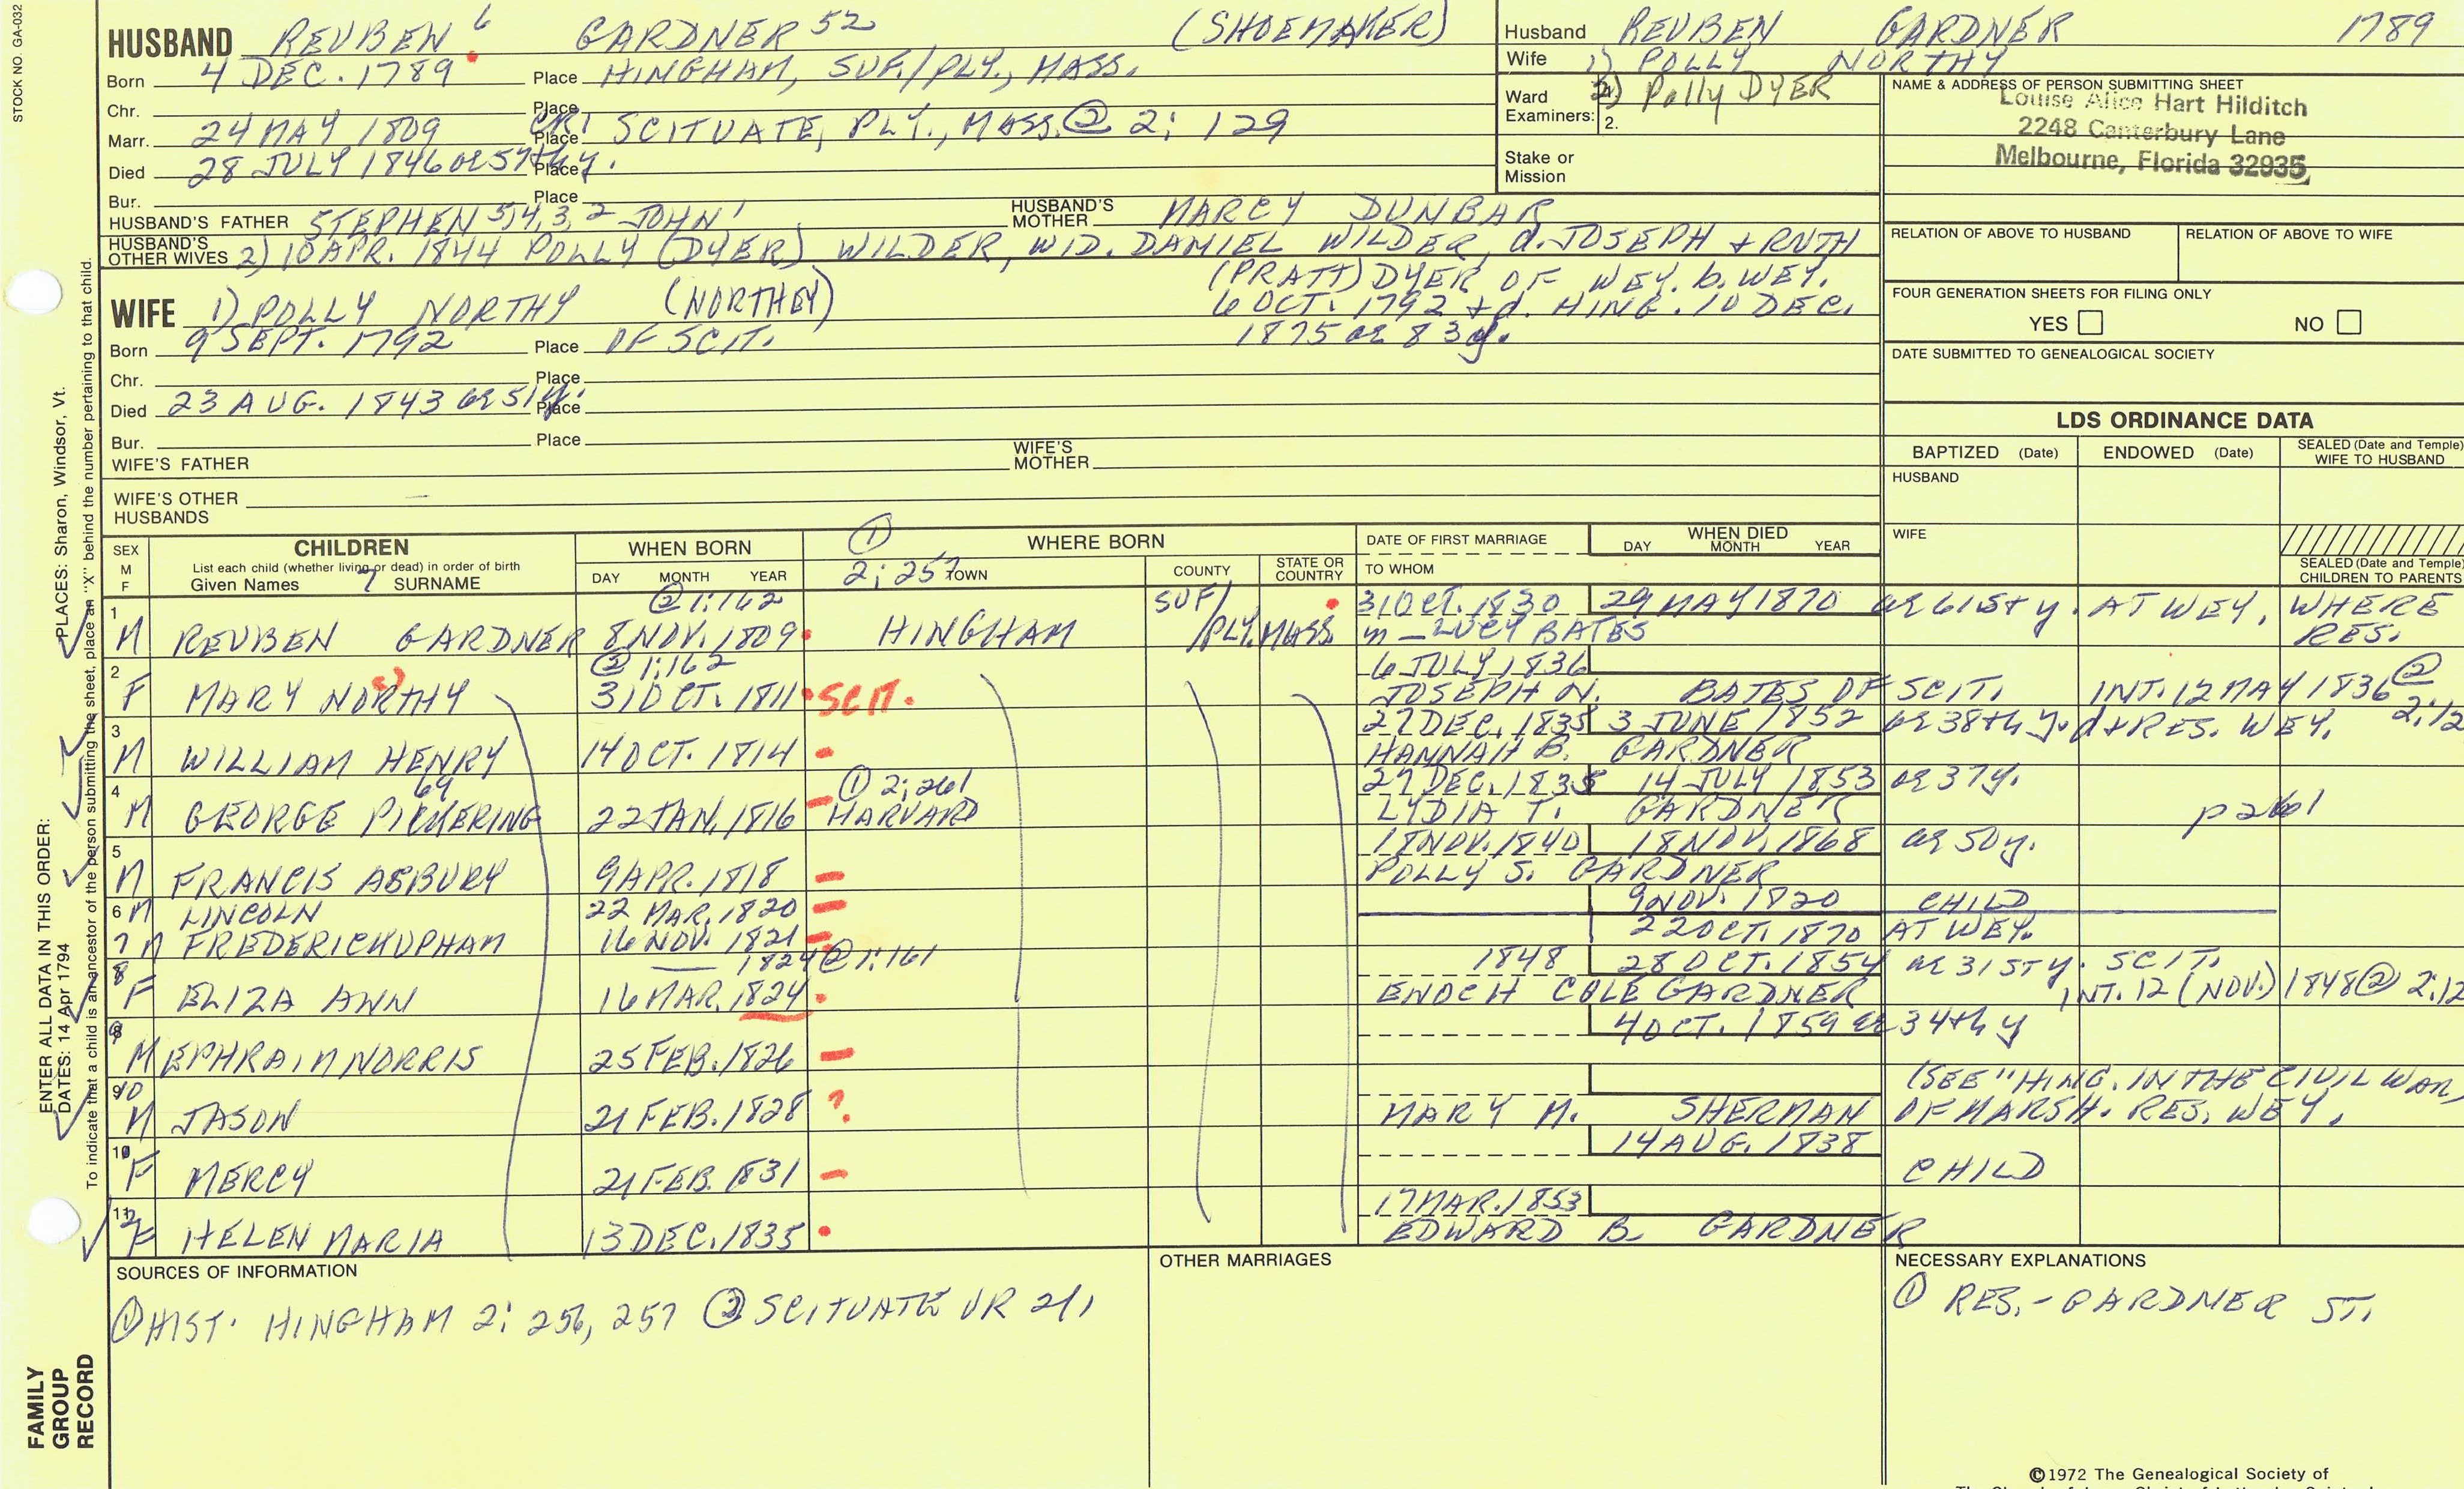 STOCK NO. GA-032
HUSBAND REUBEN 6 GARDNER 52 (SHOEMAKER)
Born 4 DEC. 1789 Place HINGHAM, SUF./PLY., MASS.
Chr. Place
Marr. 24 MAY 1809 Place SCITUATE, PLY., MASS. @ 2; 129
Died 28 JULY 1846 ae 57th y. Place
Bur. Place
HUSBAND'S FATHER STEPHEN 5,4,3,2 JOHN 1 HUSBAND'S MOTHER MARCY DUNBAR
HUSBAND'S OTHER WIVES 2) 10 APR. 1844 POLLY (DYER) WILDER, WID. DANIEL WILDER, d. JOSEPH + RUTH
(PRATT) DYER OF WEY. b. WEY.
6 OCT. 1792 + d. HING. 10 DEC.
1875 ae 83 y.
WIFE 1) POLLY NORTHY (NORTHEY)
Born 9 SEPT. 1792 Place OF SCIT.
Chr. Place
Died 23 AUG. 1843 ae 51 y. Place
Bur. Place
WIFE'S FATHER WIFE'S MOTHER
WIFE'S OTHER HUSBANDS
Husband REUBEN GARDNER 1789
Wife 1) POLLY NORTHY
2) Polly DYER
Ward Examiners: 2.
Stake or Mission
NAME & ADDRESS OF PERSON SUBMITTING SHEET
Louise Alice Hart Hilditch
2248 Canterbury Lane
Melbourne, Florida 32935
RELATION OF ABOVE TO HUSBAND RELATION OF ABOVE TO WIFE
FOUR GENERATION SHEETS FOR FILING ONLY
YES NO
DATE SUBMITTED TO GENEALOGICAL SOCIETY
LDS ORDINANCE DATA
BAPTIZED (Date) ENDOWED (Date) SEALED (Date and Temple) WIFE TO HUSBAND
HUSBAND
WIFE
SEALED (Date and Temple) CHILDREN TO PARENTS
SEX M F CHILDREN List each child (whether living or dead) in order of birth Given Names 7 SURNAME
WHEN BORN DAY MONTH YEAR
① 2; 257 WHERE BORN TOWN COUNTY STATE OR COUNTRY
DATE OF FIRST MARRIAGE TO WHOM
WHEN DIED DAY MONTH YEAR
@ 1:162
1 M REUBEN GARDNER 8 NOV. 1809 HINGHAM SUF/ /PLY. MASS. 31 OCT. 1830 29 MAY 1870 ae 61st y. AT WEY, WHERE RES.
m — LUCY BATES
② 1:162
2 F MARY NORTHY 31 OCT. 1811 SCIT. 6 JULY 1836
JOSEPH N. BATES OF SCIT. INT. 12 MAY 1836 ② 2:12
3 M WILLIAM HENRY 14 OCT. 1814 27 DEC. 1835 3 JUNE 1852 ae 38th y. d + RES. WEY.
HANNAH B. GARDNER
4 M GEORGE PICKERING 69 22 JAN. 1816 ① 2; 261 HARVARD 27 DEC. 1835 14 JULY 1853 ae 37 y.
LYDIA T. GARDNER p 261
5 M FRANCIS ASBURY 9 APR. 1818 18 NOV. 1840 18 NOV. 1868 ae 50 y.
POLLY S. GARDNER
6 M LINCOLN 22 MAR. 1820 9 NOV. 1820 CHILD
7 M FREDERICK UPHAM 16 NOV. 1821 22 OCT. 1870 AT WEY.
— 1824 @ 1:161
8 F ELIZA ANN 16 MAR. 1824 1848 28 OCT. 1854 ae 31st y. SCIT.
ENOCH COLE GARDNER INT. 12 (NOV.) 1848 @ 2:12
M EPHRAIM NORRIS 25 FEB. 1826 4 OCT. 1859 ae 34th y
10 M JASON 21 FEB. 1828 ? (SEE "HING. IN THE CIVIL WAR)
MARY M. SHERMAN OF MARSH. RES. WEY.
10 F MERCY 21 FEB. 1831 14 AUG. 1838 CHILD
12 F HELEN MARIA 13 DEC. 1835 17 MAR. 1853
EDWARD B. GARDNER
SOURCES OF INFORMATION
① HIST. HINGHAM 2; 256, 257 ② SCITUATE VR 2/1
OTHER MARRIAGES
NECESSARY EXPLANATIONS
① RES. - GARDNER ST.
ENTER ALL DATA IN THIS ORDER:
DATES: 14 Apr 1794 PLACES: Sharon, Windsor, Vt.
To indicate that a child is an ancestor of the person submitting the sheet, place an "X" behind the number pertaining to that child.
FAMILY GROUP RECORD
©1972 The Genealogical Society of